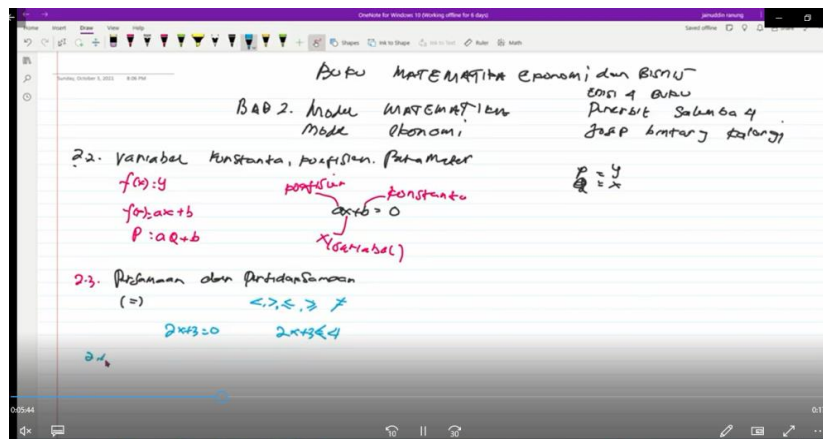 OneNote for Windows 10 (Working offline for 6 days)
jainuddin ranung
Home Insert Draw View Help
Saved offline
Shapes Ink to Shape Ink to Text Ruler Math
Sunday, October 3, 2021 8:36 PM
BUKU MATEMATIKA Ekonomi dan BISNIS
EDISI 4 BUKU
BAB 2. Model MATEMATIKA
Penerbit Salemba 4
Model ekonomi
Josep bintang kalangi
2.2. Variabel Konstanta, koefisien. Parameter
f(x) : y
koefisien
konstanta
P = y
Q = x
f(x) : ax + b
ax + b = 0
P : aQ + b
X (variabel)
2.3. Persamaan dan Pertidaksamaan
(=)
<, >, ≤, ≥ ≠
2x+3=0
2x+3≤4
2.
0:05:44
10
30